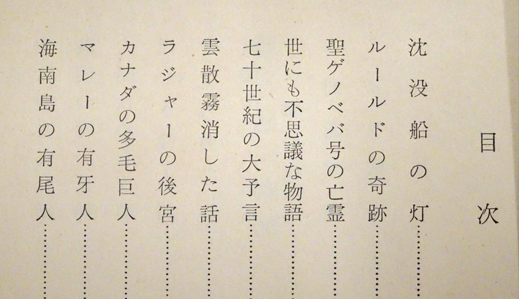 目次
沈没船の灯……………
ルールドの奇跡……………
聖ゲノベバ号の亡霊……………
世にも不思議な物語……………
七十世紀の大予言……………
雲散霧消した話……………
ラジャーの後宮……………
カナダの多毛巨人……………
マレーの有牙人……………
海南島の有尾人……………